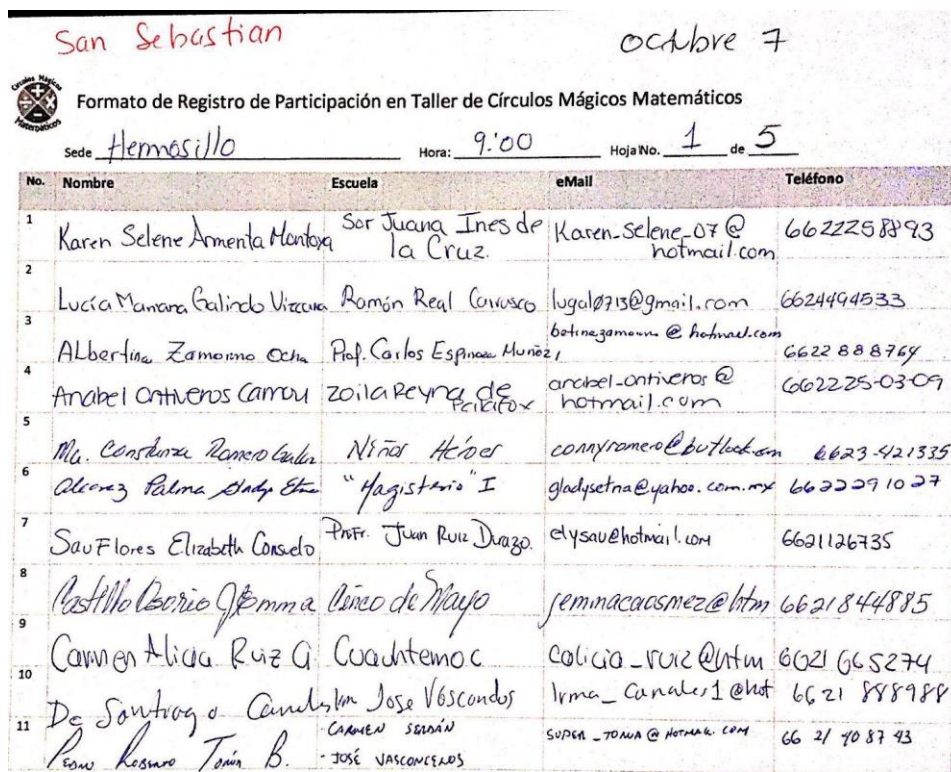 San Sebastian
octubre 7
Círculos Mágicos Matemáticos
Formato de Registro de Participación en Taller de Círculos Mágicos Matemáticos
Sede Hermosillo Hora: 9:00 Hoja No. 1 de 5
No. Nombre Escuela eMail Teléfono
1 Karen Selene Armenta Montoya Sor Juana Ines de la Cruz. Karen_Selene_07@hotmail.com 6622258893
2 Lucía Galindo Ramón Real Carrasco lugal0713@gmail.com 6624494533
3 ALbertina Zamorano Ocha Prof. Carlos Espinoza Muñoz, @hotmail.com 6622888764
4 Anabel Ontiveros Camou Zoila Reyna de Palafox anabel_ontiveros@hotmail.com 662225-03-09
5 Ma. Constanza Romero Niños Héroes connyromero@outlook.com 6623-421335
6 Alvarez Palma Gladys Etna "Magisterio" I gladysetna@yahoo.com.mx 6622291027
7 Sau Flores Elizabeth Consuelo Profr. Juan Ruiz Durazo. elysau@hotmail.com 6621126735
8 Castillo Osorio Gemma Cinco de Mayo 6621844885
9 Carmen Alicia Ruiz G Cuauhtemoc calicia_ruiz@htm 6621665274
10 De Santiago Jose Vasconcelos Irma_Canales1@hot 6621 888988
11 Pedro Rosario B. - CARMEN SERDÁN - JOSÉ VASCONCELOS SUPER_TONUA@HOTMAIL.COM 66 21 40 87 43